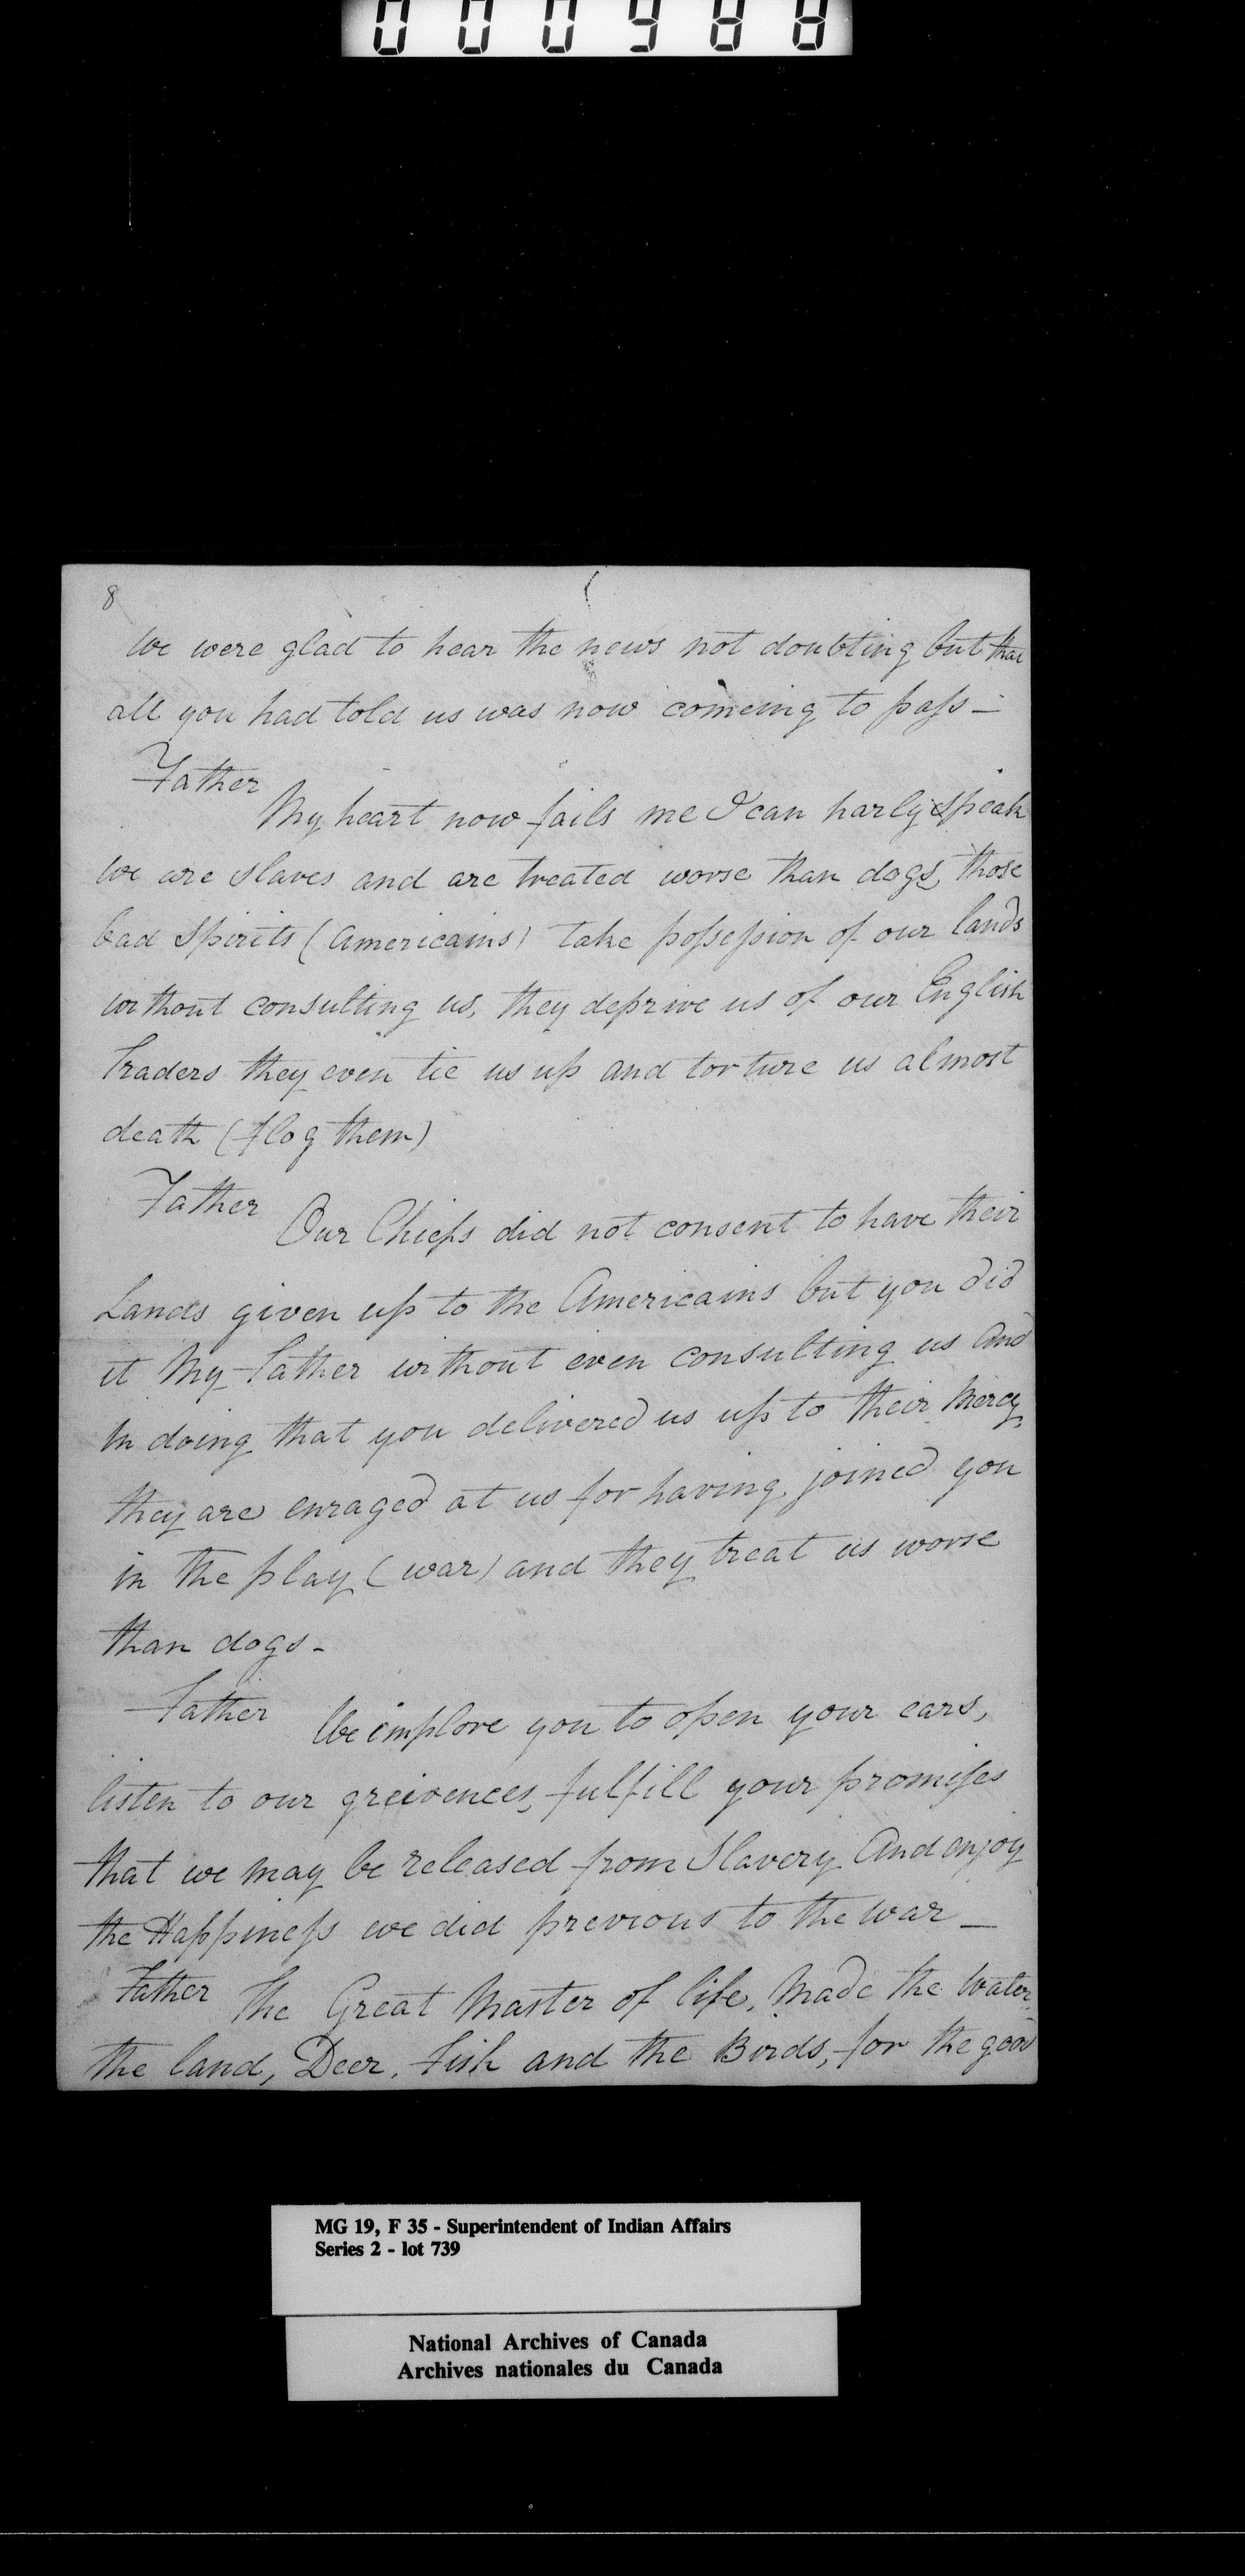 000988
8
We were glad to hear the news not doubting but that
all you had told us was now comeing to pass —
Father
My heart now fails me I can harly speak
We are slaves and are treated worse than dogs, those
bad Spirits (Americains) take possession of our lands
without consulting us, they deprive us of our English
Traders they even tie us up and torture us almost
death (flog them)
Father
Our Chiefs did not consent to have their
Lands given up to the Americains but you did
it My Father without even consulting us And
In doing that you delivered us up to their Mercy,
they are enraged at us for having joined you
in the play (war) and they treat us worse
than dogs -
Father We implore you to open your ears,
listen to our greivences, fulfill your promises
that we may be released from Slavery And enjoy
the Happiness we did previous to the war —
Father The Great Master of life, Made the Water,
the land, Deer, Fish and the Birds, for the good
MG 19, F 35 - Superintendent of Indian Affairs
Series 2 - lot 739
National Archives of Canada
Archives nationales du Canada